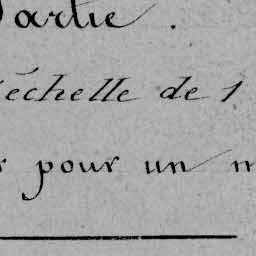 Partie.
l'échelle de 1
pour un m